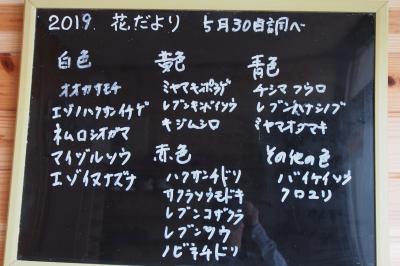 2019. 花だより 5月30日調べ
白色
オオカサモチ
エゾノハクサンイチゲ
ネムロシオガマ
マイヅルソウ
エゾイヌナズナ
黄色
ミヤマキンポウゲ
レブンキンバイソウ
キジムシロ
赤色
ハクサンチドリ
サクラソウモドキ
レブンコザクラ
レブンソウ
ノビネチドリ
青色
チシマフウロ
レブンハナシノブ
ミヤマオダマキ
その他の色
バイケイソウ
クロユリ